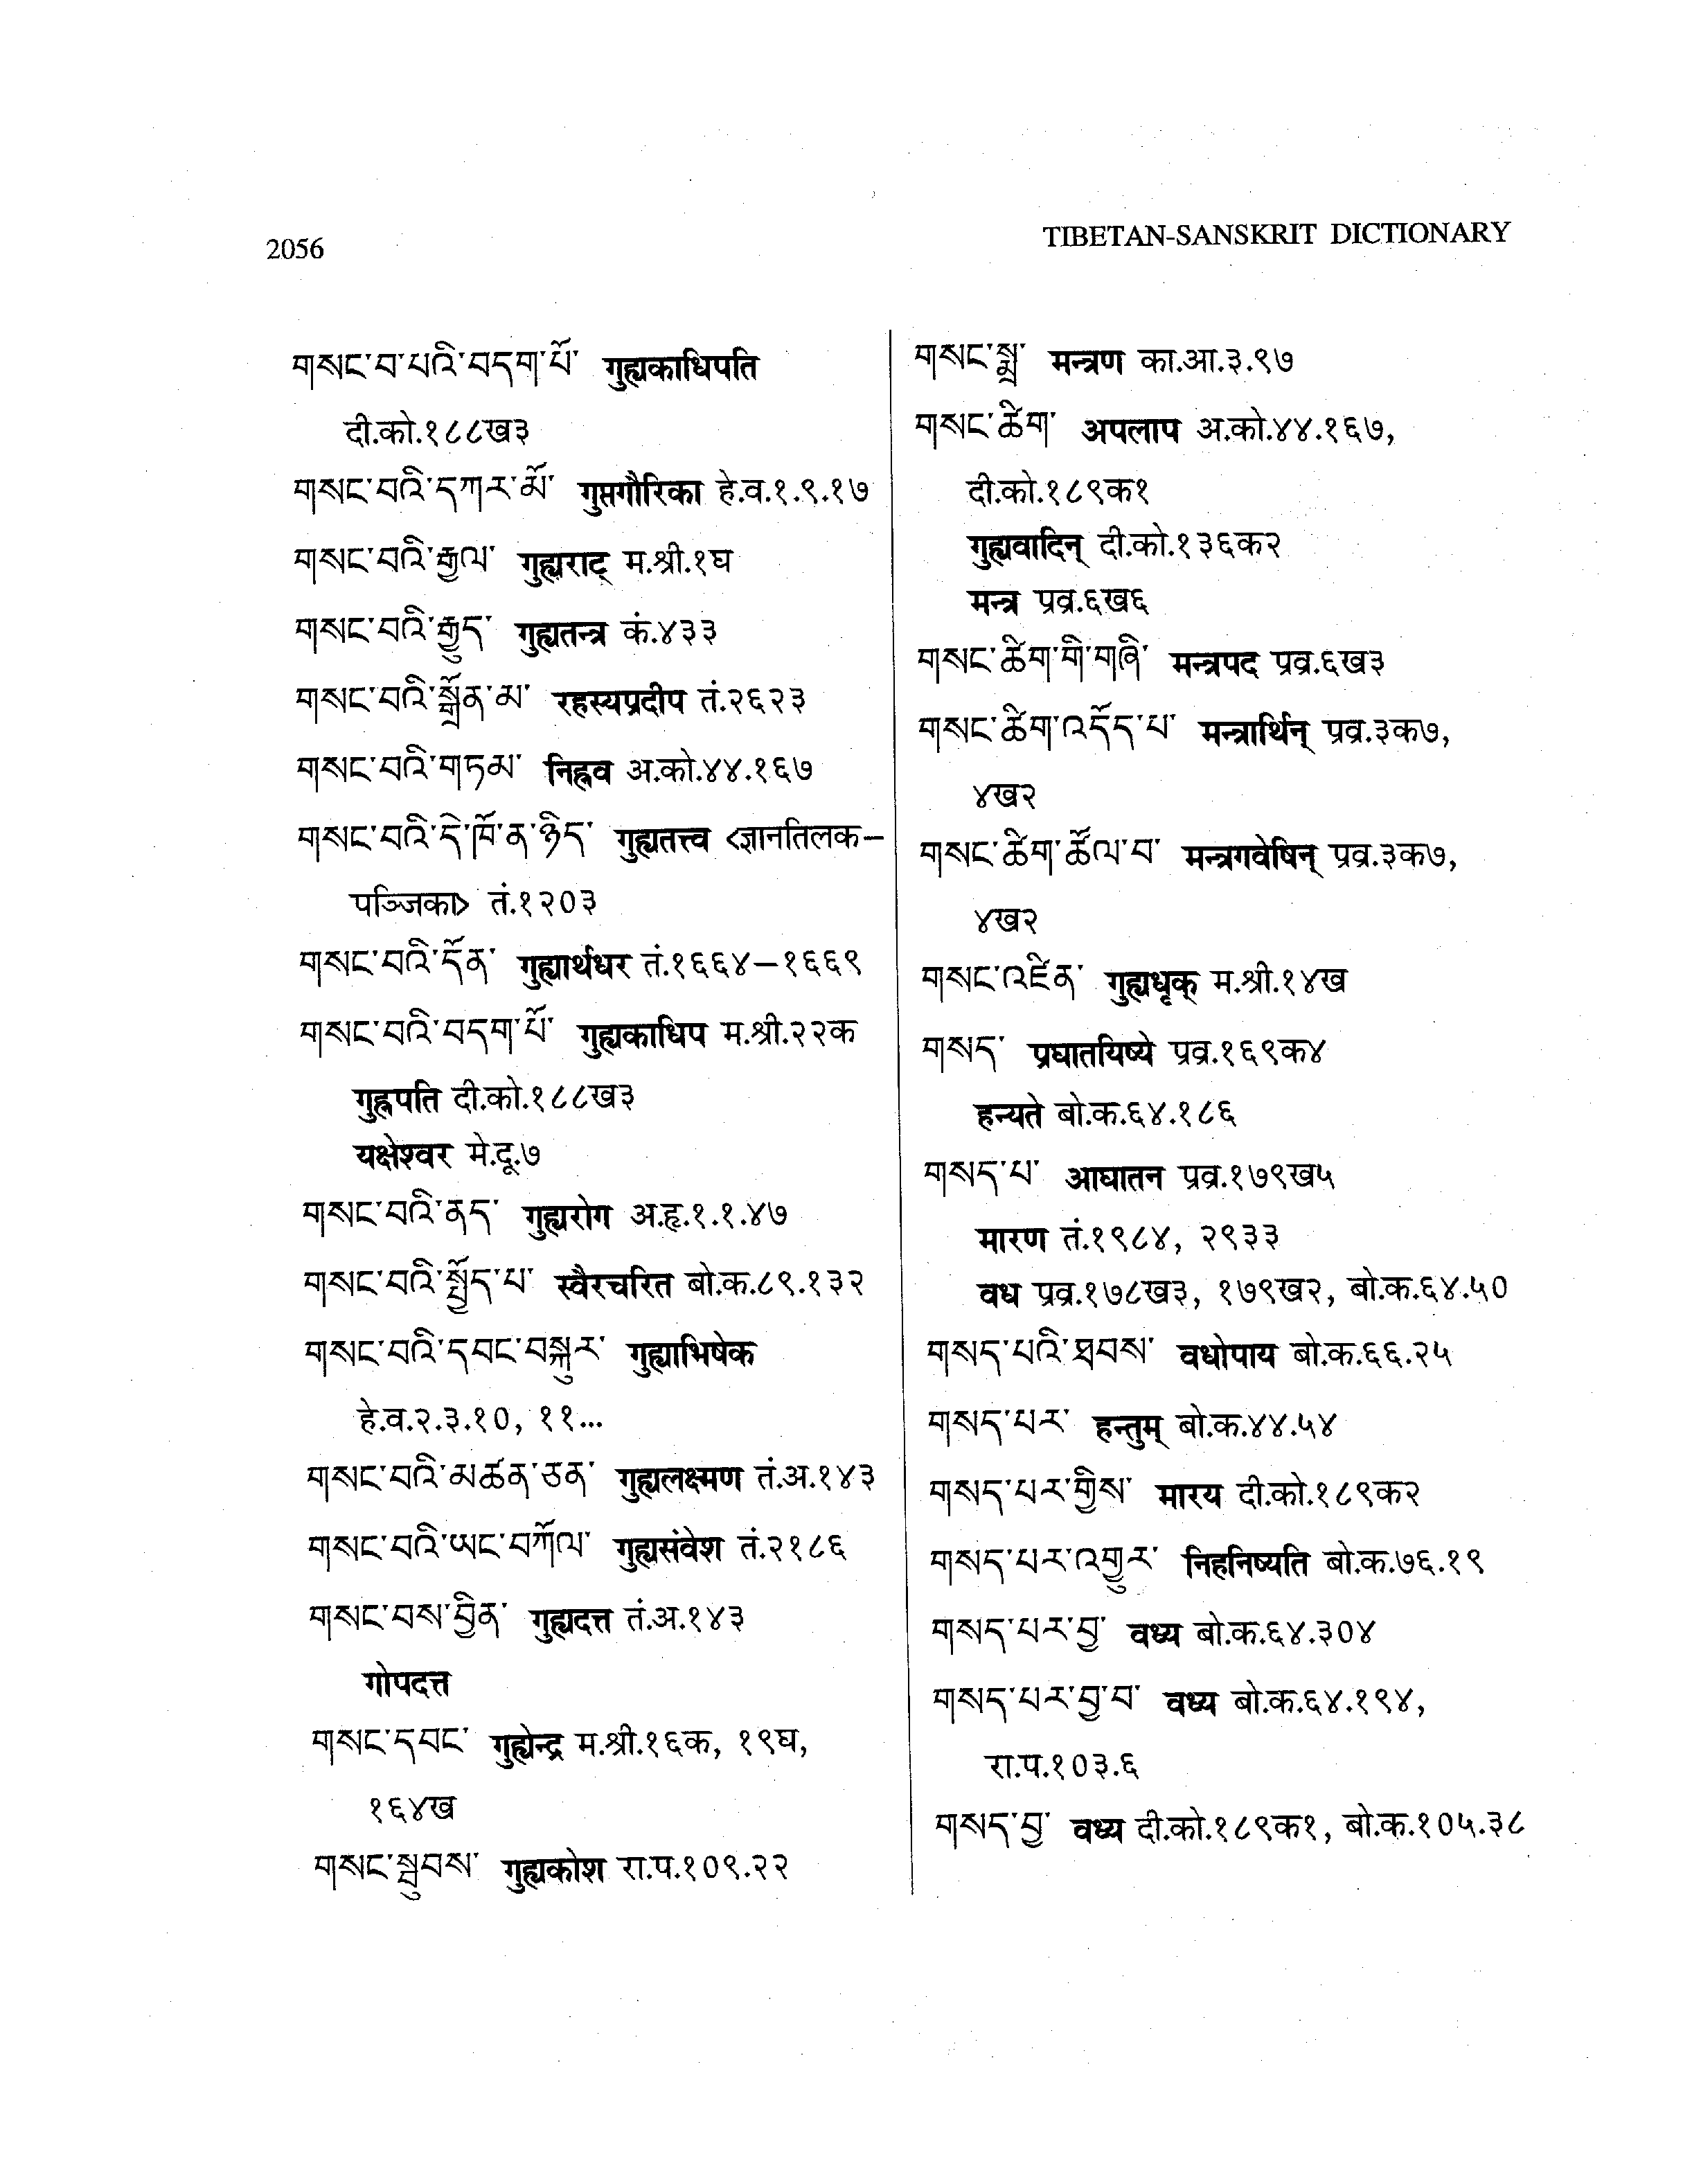 2056
TIBETAN-SANSKRIT DICTIONARY
གསང་བ་པའི་བདག་པོ་ गुह्यकाधिपति
दी.को.१८८ख३
གསང་བའི་དཀར་མོ་ गुप्तगौरिका हे.व.१.९.१७
གསང་བའི་རྒྱལ་ गुह्यराट् म.श्री.१घ
གསང་བའི་རྒྱུད་ गुह्यतन्त्र कं.४३३
གསང་བའི་སྒྲོན་མ་ रहस्यप्रदीप तं.२६२३
གསང་བའི་གཏམ་ निह्नव अ.को.४४.१६७
གསང་བའི་དེ་ཁོ་ན་ཉིད་ गुह्यतत्त्व <ज्ञानतिलक–
पञ्जिका> तं.१२०३
གསང་བའི་དོན་ गुह्यार्थधर तं.१६६४–१६६९
གསང་བའི་བདག་པོ་ गुह्यकाधिप म.श्री.२२क
गुह्नपति दी.को.१८८ख३
यक्षेश्वर मे.दू.७
གསང་བའི་ནད་ गुह्यरोग अ.हृ.१.१.४७
གསང་བའི་སྤྱོད་པ་ स्वैरचरित बो.क.८९.१३२
གསང་བའི་དབང་བསྐུར་ गुह्याभिषेक
हे.व.२.३.१०, ११...
གསང་བའི་མཚན་ཅན་ गुह्यलक्ष्मण तं.अ.१४३
གསང་བའི་ཡང་བཀོལ་ गुह्यसंवेश तं.२१८६
གསང་བས་བྱིན་ गुह्यदत्त तं.अ.१४३
गोपदत्त
གསང་དབང་ गुह्येन्द्र म.श्री.१६क, १९घ,
१६४ख
གསང་སྦུབས་ गुह्यकोश रा.प.१०९.२२
གསང་སྨྲ་ मन्त्रण का.आ.३.९७
གསང་ཚིག་ अपलाप अ.को.४४.१६७,
दी.को.१८९क१
गुह्यवादिन् दी.को.१३६क२
मन्त्र प्रव्र.६ख६
གསང་ཚིག་གི་གཞི་ मन्त्रपद प्रव्र.६ख३
གསང་ཚིག་འདོད་པ་ मन्त्रार्थिन् प्रव्र.३क७,
४ख२
གསང་ཚིག་ཚོལ་བ་ मन्त्रगवेषिन् प्रव्र.३क७,
४ख२
གསང་འཛིན་ गुह्यधृक् म.श्री.१४ख
གསད་ प्रघातयिष्ये प्रव्र.१६९क४
हन्यते बो.क.६४.१८६
གསད་པ་ आघातन प्रव्र.१७९ख५
मारण तं.१९८४, २९३३
वध प्रव्र.१७८ख३, १७९ख२, बो.क.६४.५०
གསད་པའི་ཐབས་ वधोपाय बो.क.६६.२५
གསད་པར་ हन्तुम् बो.क.४४.५४
གསད་པར་གྱིས་ मारय दी.को.१८९क२
གསད་པར་འགྱུར་ निहनिष्यति बो.क.७६.१९
གསད་པར་བྱ་ वध्य बो.क.६४.३०४
གསད་པར་བྱ་བ་ वध्य बो.क.६४.१९४,
रा.प.१०३.६
གསད་བྱ་ वध्य दी.को.१८९क१, बो.क.१०५.३८